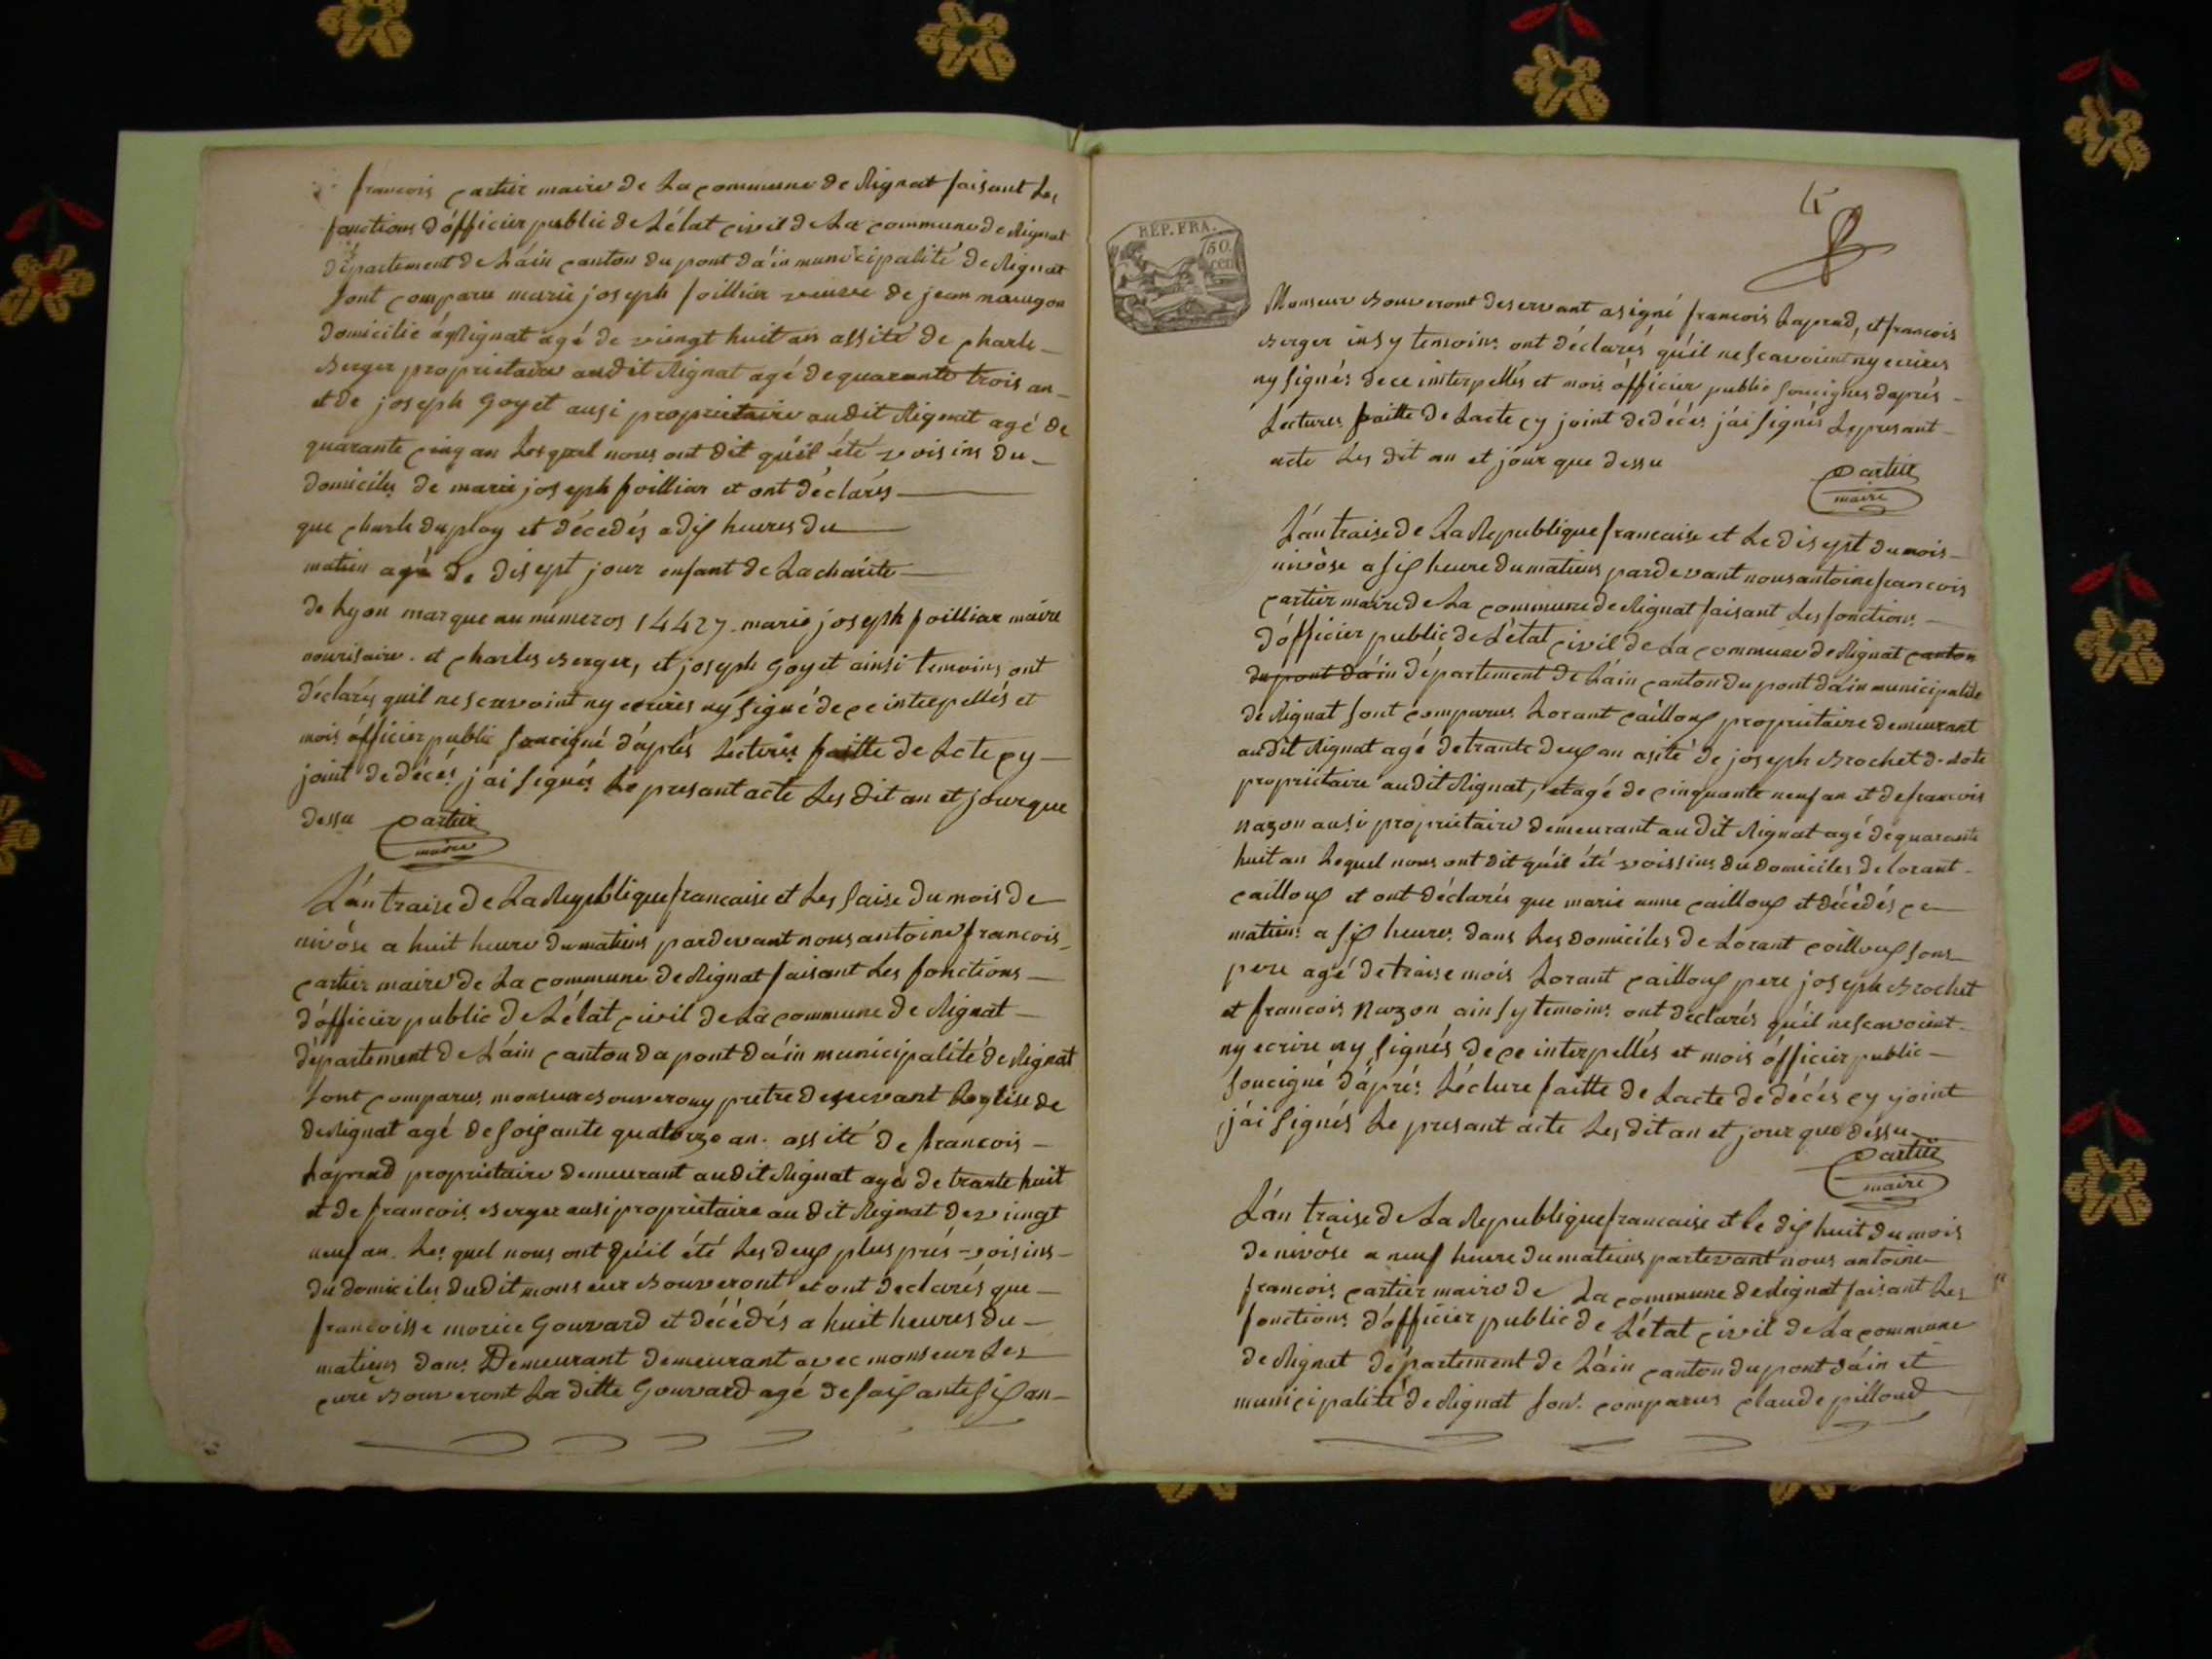 francois cartier maire de La commune de Rignat faisant Les
fonctions d'officier public de L'état civil de La commune de Rignat
département de L'áin canton du pont dáin municipalité de Rignat
sont comparu marie joseph foilliar veuve de jean naugon
domicilié á Rignat agé de vingt huit an assité de charle
Berger proprietaire audit Rignat agé de quarante trois an
et de joseph Goyet ausi proprietaire audit Rignat agé de
quarante cinq an Lesquel nous ont dit qu'il été voisins du
domiciles de marie joseph foilliar et ont déclarés
que charle duploy et décedés a dix heures du
matien agé de disept jour enfant de La charite
de Lyon marque au numeros 14427 marie joseph foilliar maire
nourisaire et charles Berger, et joseph Goyet ainsi temoins ont
déclarés quil ne scavoint ny ecrires ny signé de ce interpellés et
mois officier public soucigné d'áprés Lectures faitte de Lacte cy
joint de décés j'ái signés Le presant acte Les dit an et jour que
dessu cartier
maire
L'án traise de La Republique francaise et Les saise du mois de
nivôse a huit heure du matiens pardevant nous antoine francois
cartier maire de La commune de Rignat faisant Les fonctions
d'officier public de L'élat civil de La commune de Rignat
département de L'áin canton du pont dáin municipalité de Rignat
sont comparus monseur Bouverony pretre deservant Leglise de
de Rignat agé de soixante quatorze an. assité de francois
Laprad proprietaire demeurant audit Rignat agé de trante huit
et de francois Berger ausi proprietaire au dit Rignat de vingt
neuf an. Lesquel nous ont qu'il été Les deux plus prés voisins
du domiciles dudit monseur Bouveront et ont declarés que
francoisse morice Gouvard et décédés a huit heures du
matiens dans Demeurant demeurant avec monseur Les
curé Bouveront La ditte Gouvard agé de soixante six an
REP. FRA.
50
cen
Monseur Bouveront deservant a signé francois Laprad, et francois
Berger insy temoins ont déclarés qu'il ne scavoient ny ecrires
ny signés de ce interpellés et mois officier public soucignes daprés
Lectures faitte de Lacte cy joint de décés j'ái signés Le presant
acte Les dit an et jour que dessu
cartier
maire
L'án traise de La Republique francaise et Le disept du mois
nivôse a six heure du matiens pardevant nous antoine francois
cartier maire de La commune de Rignat faisant Les fonctions
d'officier public de L'état civil de La commune de Rignat canton
du pont dáin département de L'áin canton du pont dáin municipalité
de Rignat sont comparus Lorant cailloux proprietaire demeurant
audit Rignat agé de trante deux an asité de joseph Brochet
proprietaire audit Rignat, et agé de cinquante neuf an et de francois
Nazon ausi proprietaire demeurant audit Rignat agé de quarante
huit an Lequel nous ont dit qu'il été voissins du domiciles de Lorant
cailloux et ont déclarés que marie anne cailloux et décédés ce
matiens a six heures dans Les domiciles de Lorant coilloux sons
pere agé de traise mois Lorant cailloux pere joseph Brochet
et francois Nazon ainsy temoins ont déclarés qu'il ne scavoient
ny ecrire ny signés de ce interpellés et mois officier public
soucigné d'áprés Léclure faitte de Lacte de décés cy joint
j'ái signés Le presant acte Les dit an et jour que déssu
cartier
maire
L'án traise de La Republique francaise et le dix huit du mois
de nivôse a neuf heure du matiens partevant nous antoine
francois cartier maire de La commune de Rignat faisant Les
fonctions d'officier public de L'état civil de La commune
de Rignat département de L'áin canton du pont dáin et
municipalité de Rignat son. comparus claude pilloud